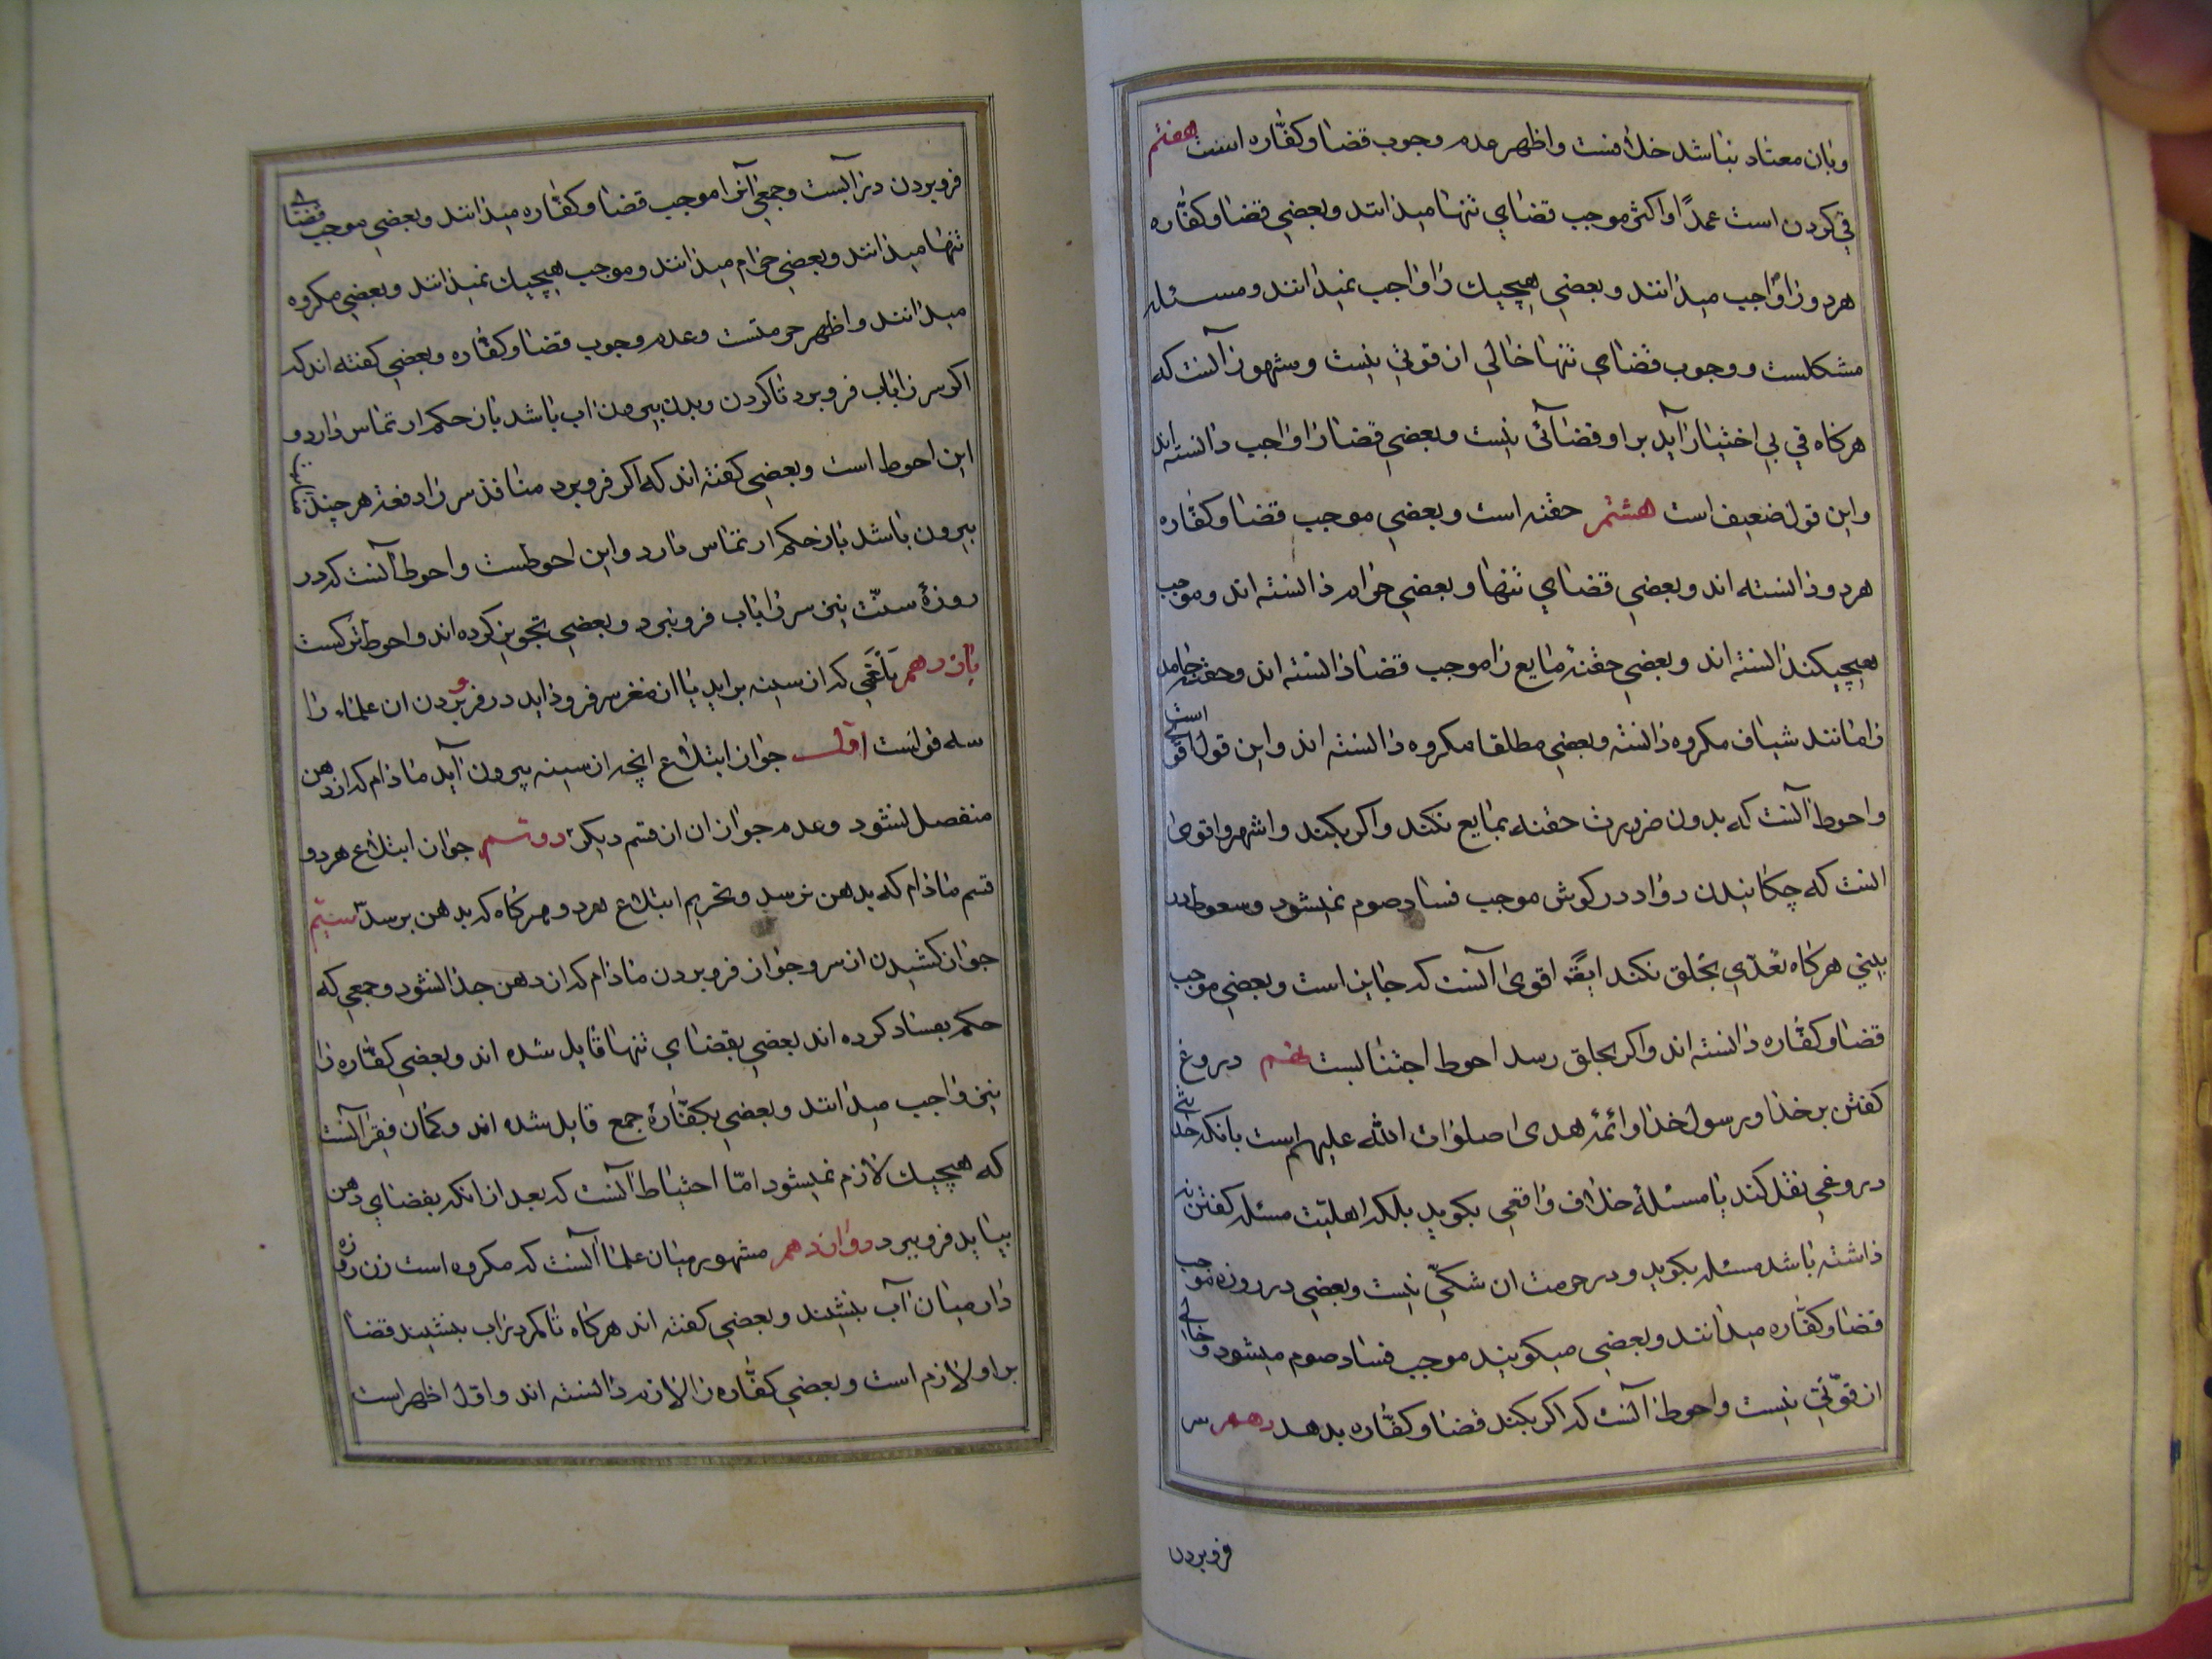 و بان معتاد نباشد خلافست و اظهر عدم وجوب قضا و کفّاره است هفتم
قي کردن است عمدًا و اکثر موجب قضاي تنها میدانند و بعضي قضا و کفّاره
هر دو را واجب میدانند و بعضي هیچیک را واجب نمیدانند و مسئله
مشکلست و وجوب قضاي تنها خالي از قوتي نیست و مشهور آنست که
هرکاه قي بي اختیار آید بر او قضائي نیست و بعضي قضا را واجب دانسته اند
و این قول ضعیف است هشتم حقنه است و بعضي موجب قضا و کفاره
هر دو دانسته اند و بعضي قضاي تنها و بعضي حرام دانسته اند و موجب
هیچیک ندانسته اند و بعضي حقنهٔ مایع را موجب قضا دانسته اند و حقنه جامد
را مانند شیاف مکروه دانسته و بعضي مطلقا مکروه دانسته اند و این قول اقوي است
و احوط آنست که بدون ضرورت حقنه بمایع نکند و اکر بکند و اشهر و اقوی
انست که چکانیدن دوا در کوش موجب فساد صوم نمیشود و سعوط در
بیني هرکاه تعدّي بحلق نکند ایضًا اقوی آنست که جایز است و بعضي موجب
قضا و کفّاره دانسته اند و اکر بحلق رسد احوط اجتنابست نهم دروغ
کفتن بر خدا و رسول خدا و ائمهٔ هدی صلوات الله علیهم است بانکه حدیثي
دروغي نقل کند یا مسئلهٔ خلاف واقعي بکوید بلکه اهلیّت مسئله کفتن نه
داشته باشد مسئله بکوید و در حرمت ان شکّي نیست و بعضي در روزه موجب
قضا و کفّاره میدانند و بعضي میکویند موجب فساد صوم میشود و خالي
از قوّتي نیست و احوط آنست که اکر بکند قضا و کفّاره بدهد دهم سر
فرو بردن
فرو بردن در آبست و جمعي آنرا موجب قضا و کفّاره میدانند و بعضي موجب قضاي
تنها میدانند و بعضي حرام میدانند و موجب هیچیک نمیدانند و بعضي مکروه
میدانند و اظهر حرمتست و عدم وجوب قضا و کفّاره و بعضي کفته اند که
اکر سر را باب فرو برد تا کردن و بدن بیرون اب باشد باز حکم ارتماس دارد و
این احوط است و بعضي کفته اند که اکر فرو برد منافذ سر را دفعة هر چند
بیرون باشد باز حکم ارتماس دارد و این احوطست و احوط آنست که در
روزهٔ سنّت نیز سر را باب فرو نبرد و بعضي تجویز کرده اند و احوط ترکست
یازدهم بلغمي که از سینه بر اید یا از مغز سر فرود اید در فرو بردن ان علماء را
سه قولست اوّل جواز ابتلاع انچه از سینه بیرون آید مادام که از دهن
منفصل نشود و عدم جواز ان از قسم دیکر دوّیم جواز ابتلاع هر دو
قسم مادام که بدهن نرسد و تحریم ابتلاع هر دو هرکاه که بدهن برسد سیّم
جواز کشیدن از سر و جواز فرو بردن مادام که از دهن جدا نشود و جمعي که
حکم بفساد کرده اند بعضي بقضاي تنها قایل شده اند و بعضي کفّاره را
نیز واجب میدانند و بعضي بکفّارهٔ جمع قایل شده اند و کمان فقیر آنست
که هیچیک لازم نمیشود امّا احتیاط آنست که بعد از انکه بفضاي دهن
بیاید فرو نبرد دوازدهم مشهور میان علما آنست که مکروه است زن روزه
دار میان آب بنشیند و بعضي کفته اند هرکاه تا کمر در اب بنشیند قضا
بر او لازم است و بعضي کفّاره را لازم دانسته اند و اوّل اظهر است